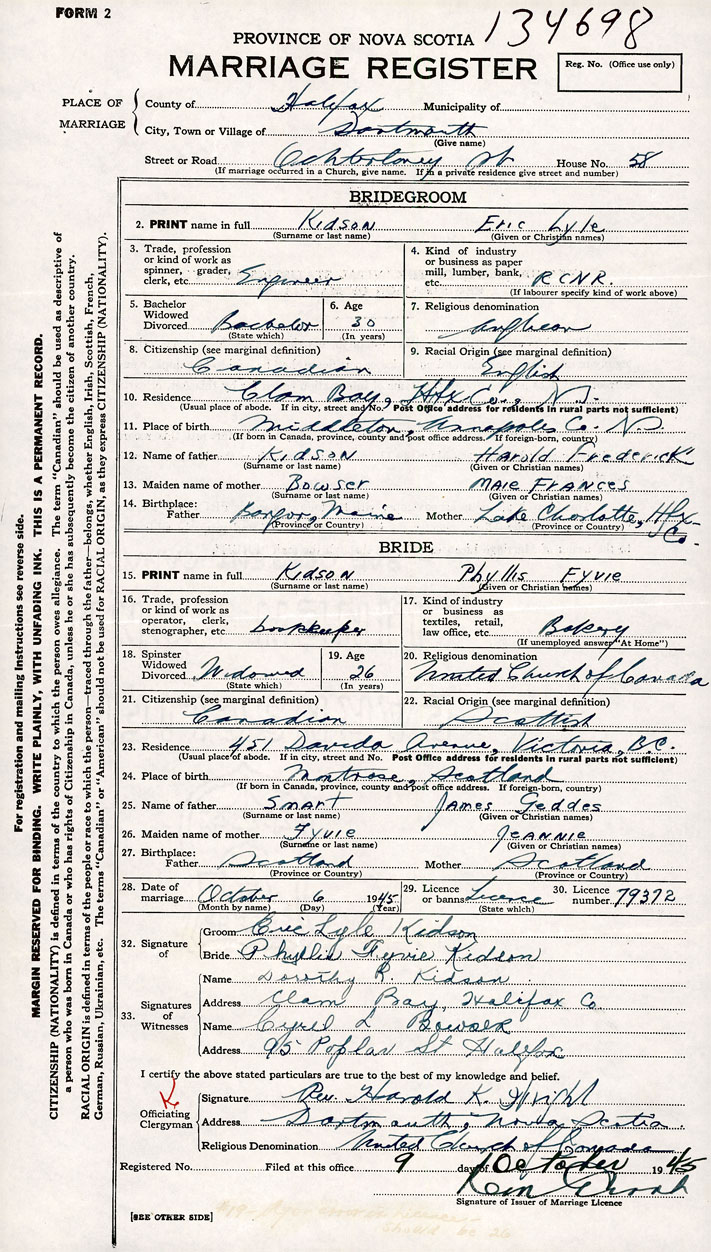 FORM 2
134698
PROVINCE OF NOVA SCOTIA
MARRIAGE REGISTER
Reg. No. (Office use only)
PLACE OF MARRIAGE
County of Halifax Municipality of
City, Town or Village of Dartmouth
(Give name)
Street or Road Ochterloney St House No. 58
(If marriage occurred in a Church, give name. If in a private residence give street and number)
BRIDEGROOM
2. PRINT name in full Kidson Eric Lyle
(Surname or last name) (Given or Christian names)
3. Trade, profession or kind of work as spinner, grader, clerk, etc. Engineer
4. Kind of industry or business as paper mill, lumber, bank, etc. RCNR.
(If labourer specify kind of work above)
5. Bachelor Widowed Divorced Bachelor
(State which)
6. Age 30
(In years)
7. Religious denomination Anglican
8. Citizenship (see marginal definition) Canadian
9. Racial Origin (see marginal definition) English
10. Residence Clam Bay, Hfx Co., N.S.
(Usual place of abode. If in city, street and No. Post Office address for residents in rural parts not sufficient)
11. Place of birth Middleton, Annapolis Co. N.S.
(If born in Canada, province, county and post office address. If foreign-born, country)
12. Name of father Kidson Harold Frederick
(Surname or last name) (Given or Christian names)
13. Maiden name of mother Bowser Maie Frances
(Surname or last name) (Given or Christian names)
14. Birthplace: Father Bangor, Maine Mother Lake Charlotte, Hfx Co.
(Province or Country) (Province or Country)
BRIDE
15. PRINT name in full Kidson Phyllis Fyvie
(Surname or last name) (Given or Christian names)
16. Trade, profession or kind of work as operator, clerk, stenographer, etc. bookkeeper
17. Kind of industry or business as textiles, retail, law office, etc. Bakery
(If unemployed answer "At Home")
18. Spinster Widowed Divorced Widowed
(State which)
19. Age 26
(In years)
20. Religious denomination United Church of Canada
21. Citizenship (see marginal definition) Canadian
22. Racial Origin (see marginal definition) Scottish
23. Residence 451 Davida Avenue, Victoria, B.C.
(Usual place of abode. If in city, street and No. Post Office address for residents in rural parts not sufficient)
24. Place of birth Montrose, Scotland
(If born in Canada, province, county and post office address. If foreign-born, country)
25. Name of father Smart James Geddes
(Surname or last name) (Given or Christian names)
26. Maiden name of mother Fyvie Jeannie
(Surname or last name) (Given or Christian names)
27. Birthplace: Father Scotland Mother Scotland
(Province or Country) (Province or Country)
28. Date of marriage October 6 1945
(Month by name) (Day) (Year)
29. Licence or banns Licence
(State which)
30. Licence number 79372
32. Signature of
Groom Eric Lyle Kidson
Bride Phyllis Fyvie Kidson
33. Signatures of Witnesses
Name Dorothy R. Kidson
Address Clam Bay, Halifax Co.
Name Cyril L Bowser
Address 95 Poplar St Halifax
I certify the above stated particulars are true to the best of my knowledge and belief.
Officiating Clergyman
Signature Rev. Harold K. Wright
Address Dartmouth, Nova Scotia.
Religious Denomination United Church of Canada
Registered No. Filed at this office 9 day of October 1945
Signature of Issuer of Marriage Licence
[SEE OTHER SIDE]
should be 26
For registration and mailing Instructions see reverse side.
MARGIN RESERVED FOR BINDING. WRITE PLAINLY, WITH UNFADING INK. THIS IS A PERMANENT RECORD.
CITIZENSHIP (NATIONALITY) is defined in terms of the country to which the person owes allegiance. The term "Canadian" should be used as descriptive of
a person who was born in Canada or who has rights of Citizenship in Canada, unless he or she has subsequently become the citizen of another country.
RACIAL ORIGIN is defined in terms of the people or race to which the person—traced through the father—belongs, whether English, Irish, Scottish, French,
German, Russian, Ukrainian, etc. The terms "Canadian" or "American" should not be used for RACIAL ORIGIN, as they express CITIZENSHIP (NATIONALITY).